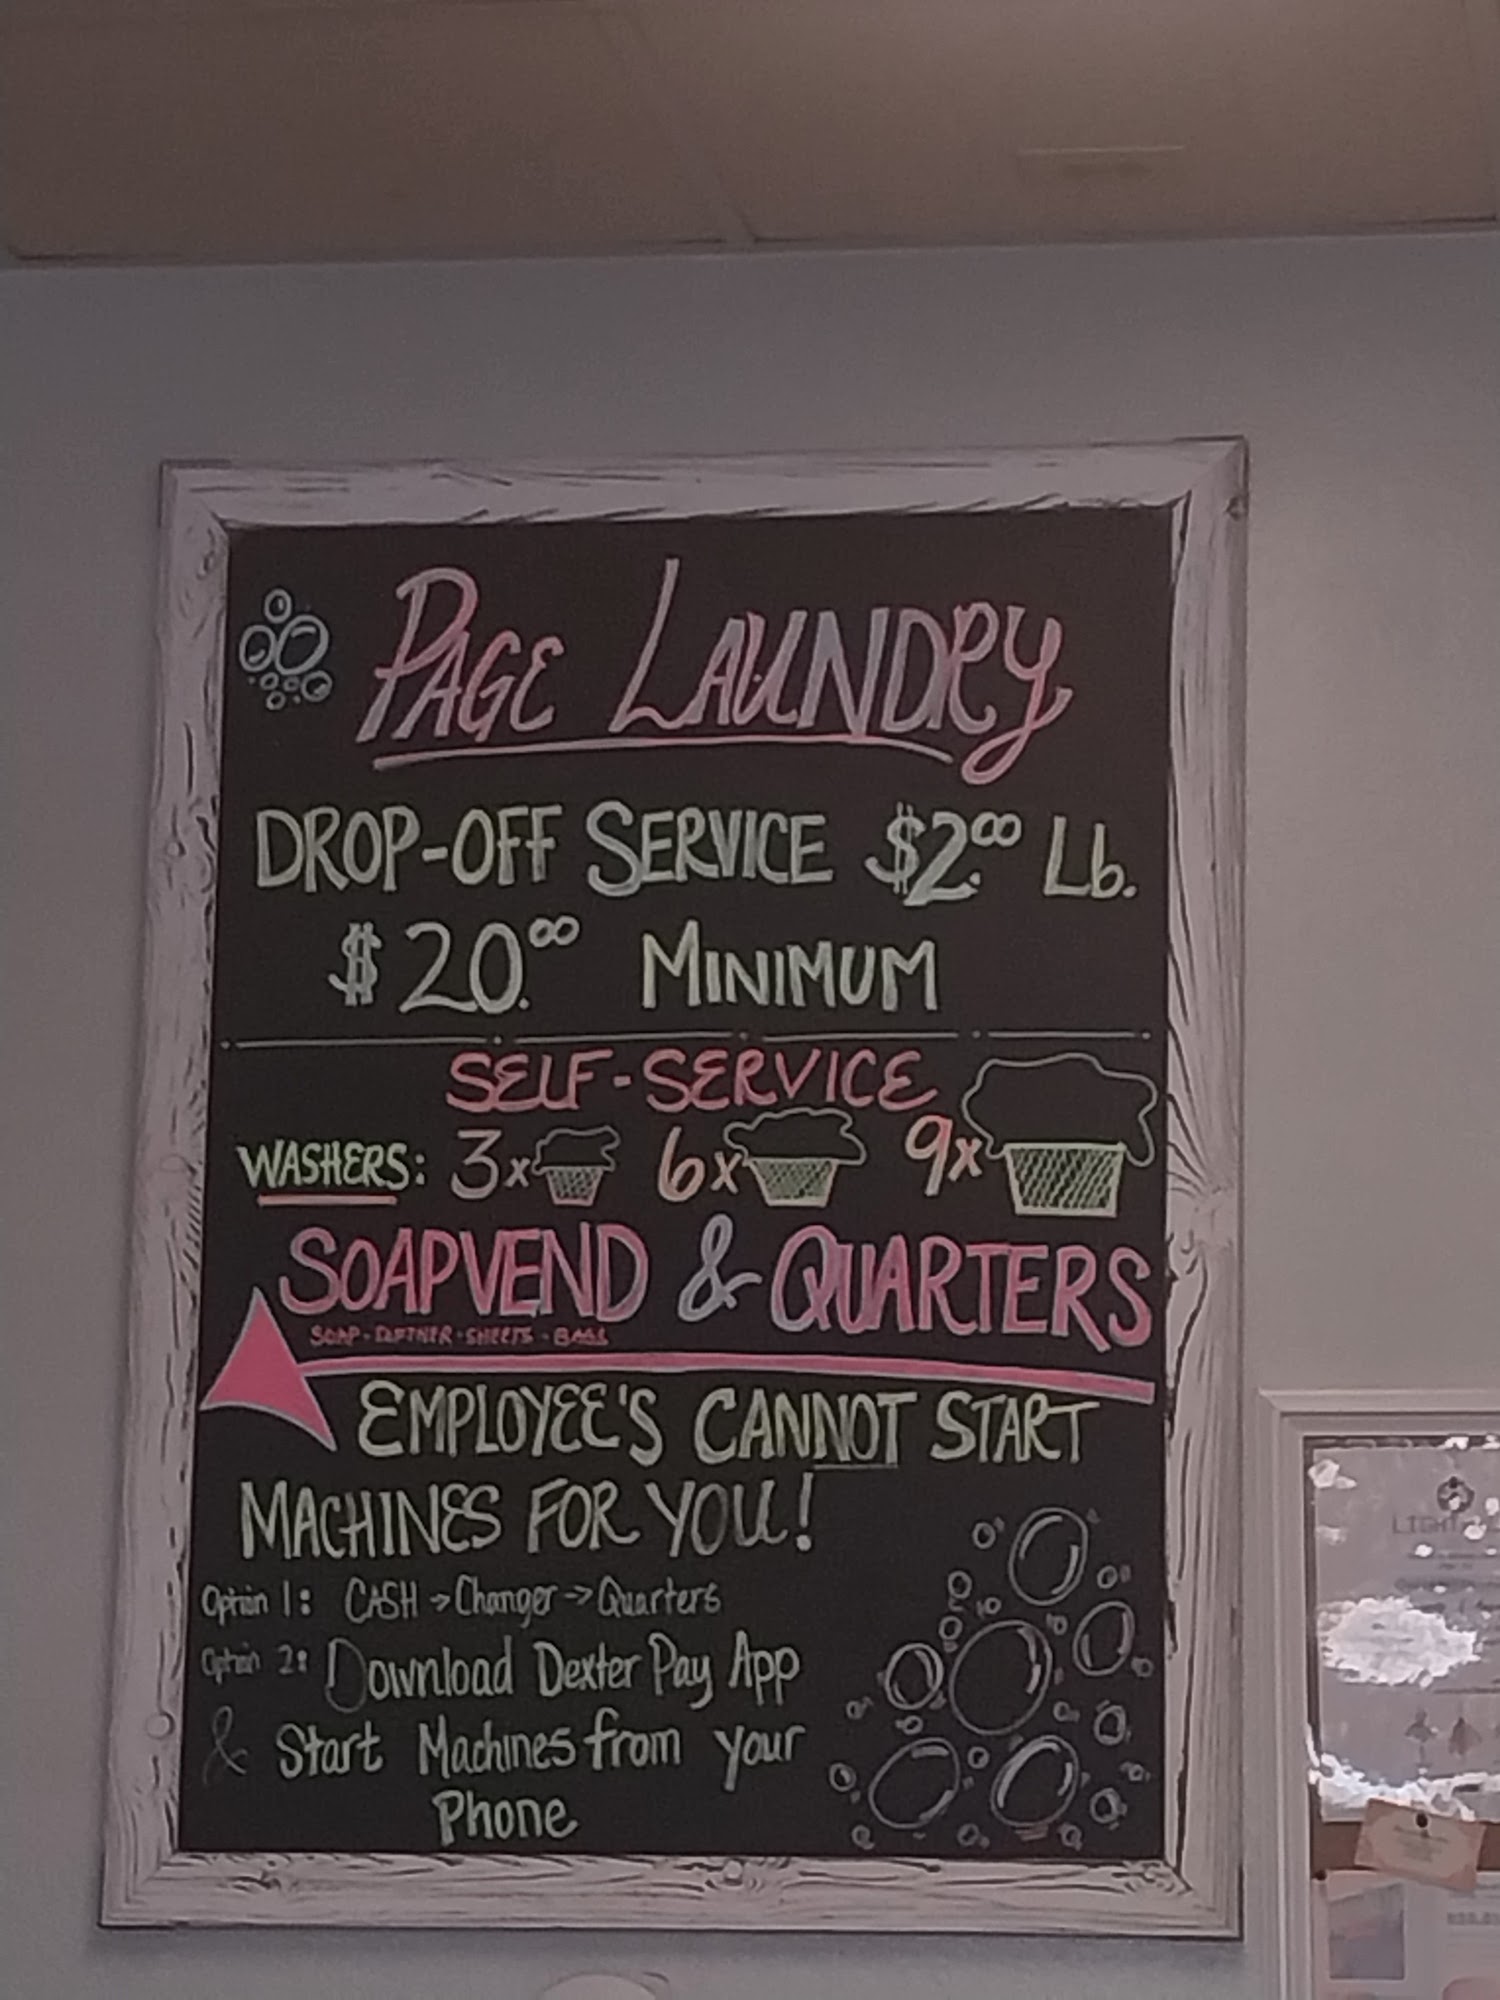 PAGE LAUNDRY
DROP-OFF SERVICE $2.00 Lb.
$20.00 MINIMUM
SELF-SERVICE
WASHERS: 3x 6x 9x
SOAPVEND & QUARTERS
SOAP - SOFTNER - SHEETS - BAGS
EMPLOYEE'S CANNOT START
MACHINES FOR YOU!
Option 1: CASH → Changer → Quarters
Option 2: Download Dexter Pay App
& Start Machines from your
Phone